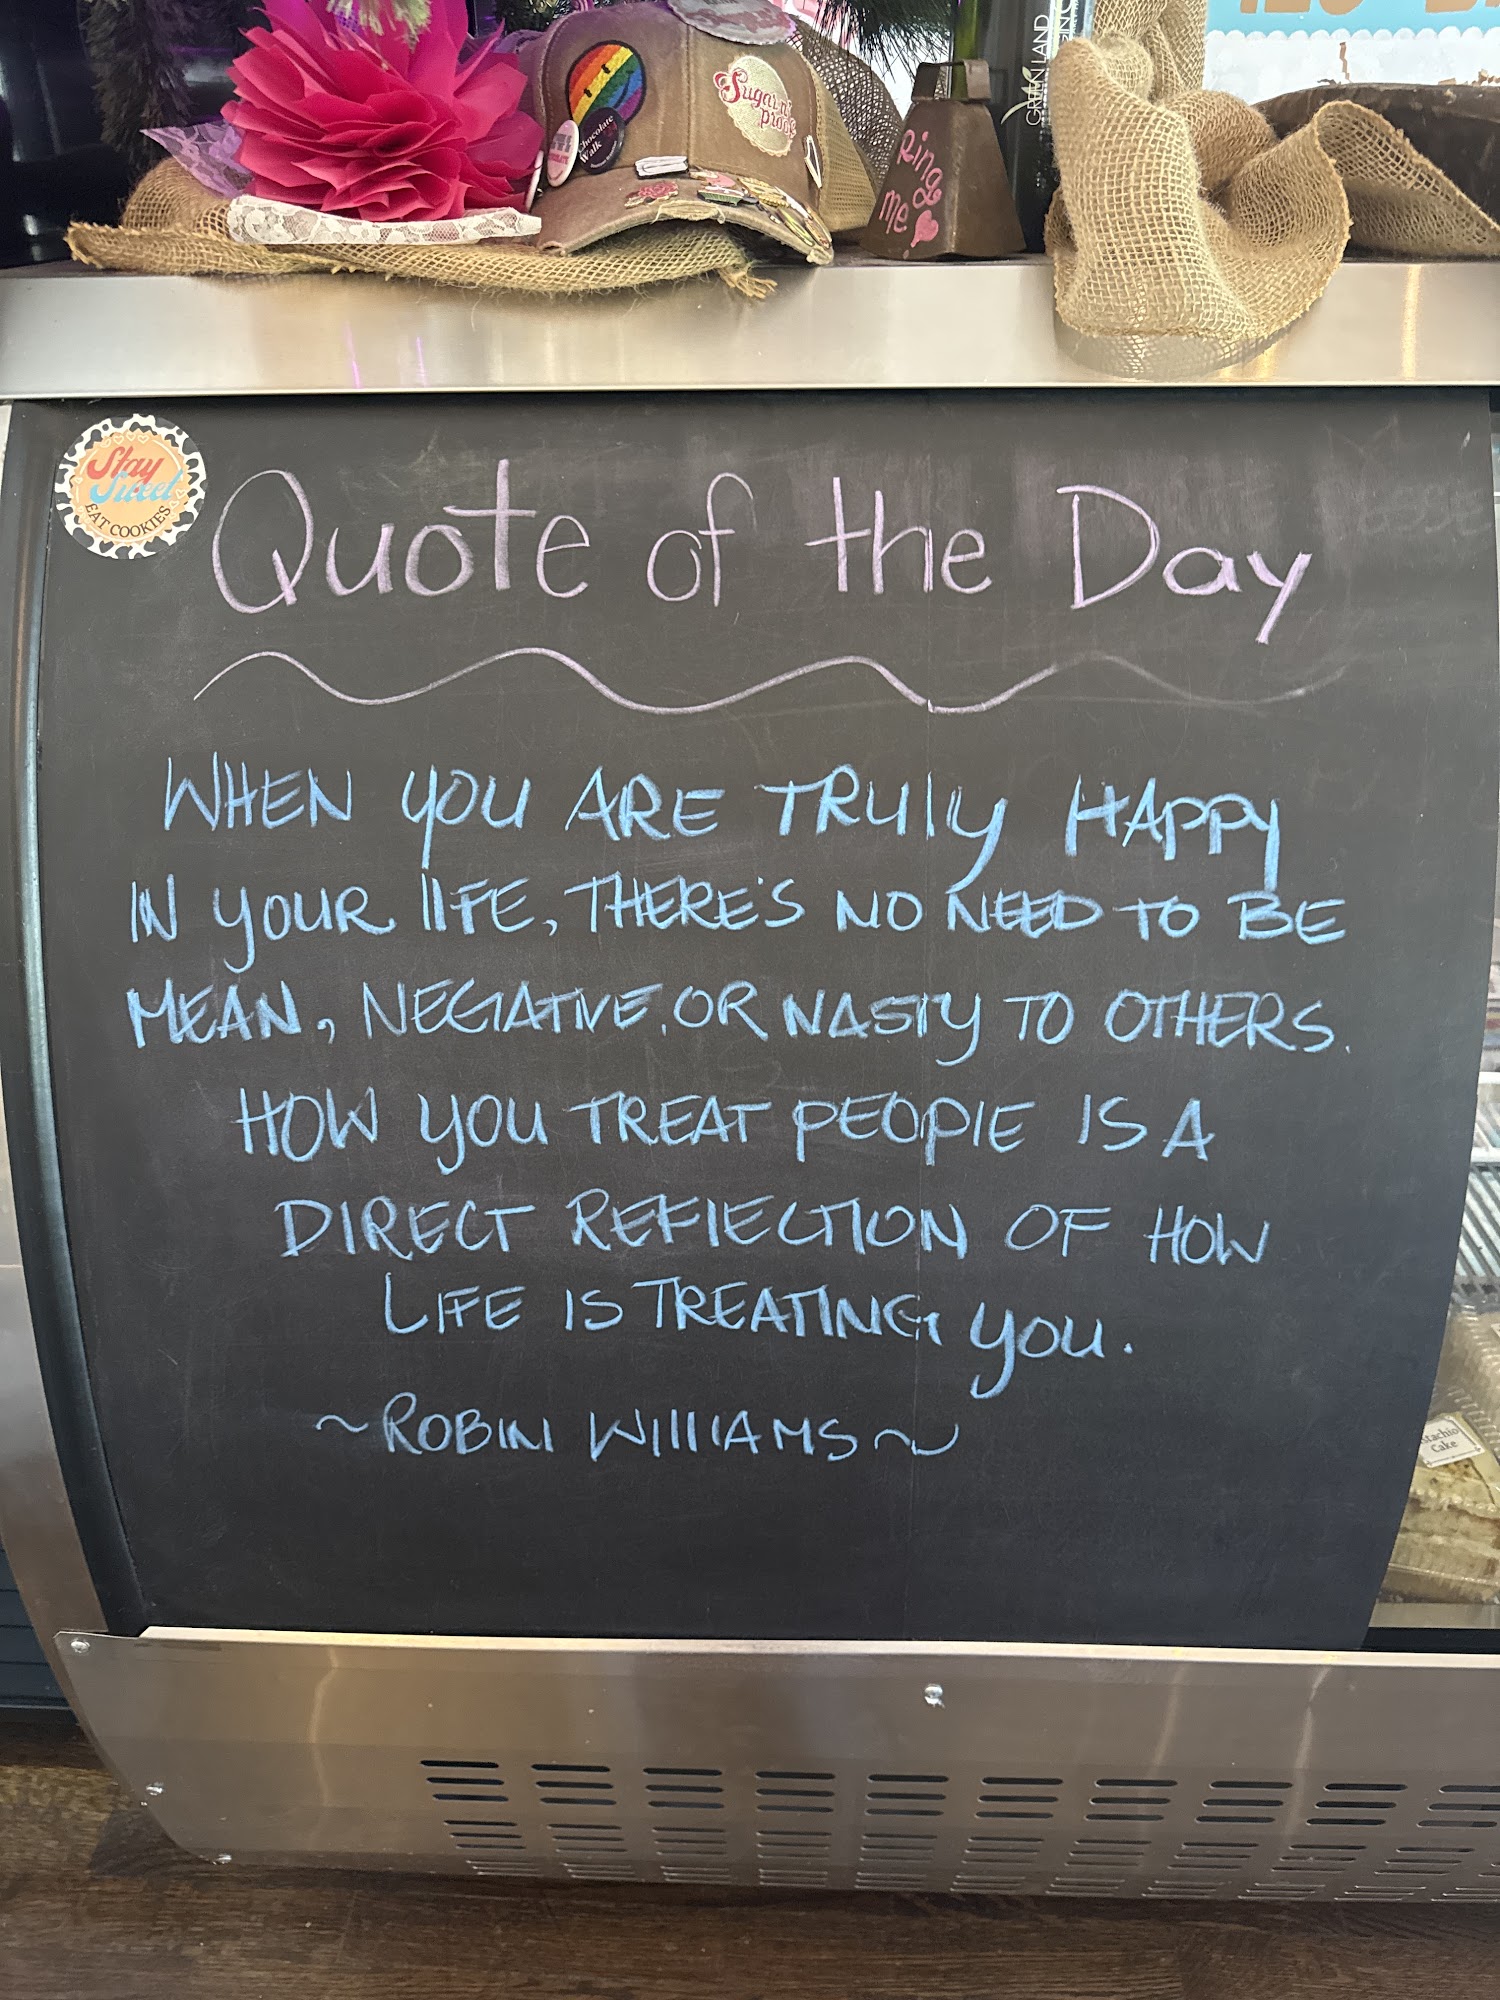 Sugar n' proof
Chocolate
Walk
GREENLAND
Ring
me
Stay
Sweet
EAT COOKIES
Quote of the Day
WHEN YOU ARE TRULY HAPPY
IN YOUR LIFE, THERE'S NO NEED TO BE
MEAN, NEGATIVE, OR NASTY TO OTHERS.
HOW YOU TREAT PEOPLE IS A
DIRECT REFLECTION OF HOW
LIFE IS TREATING YOU.
~ROBIN WILLIAMS~
Cake